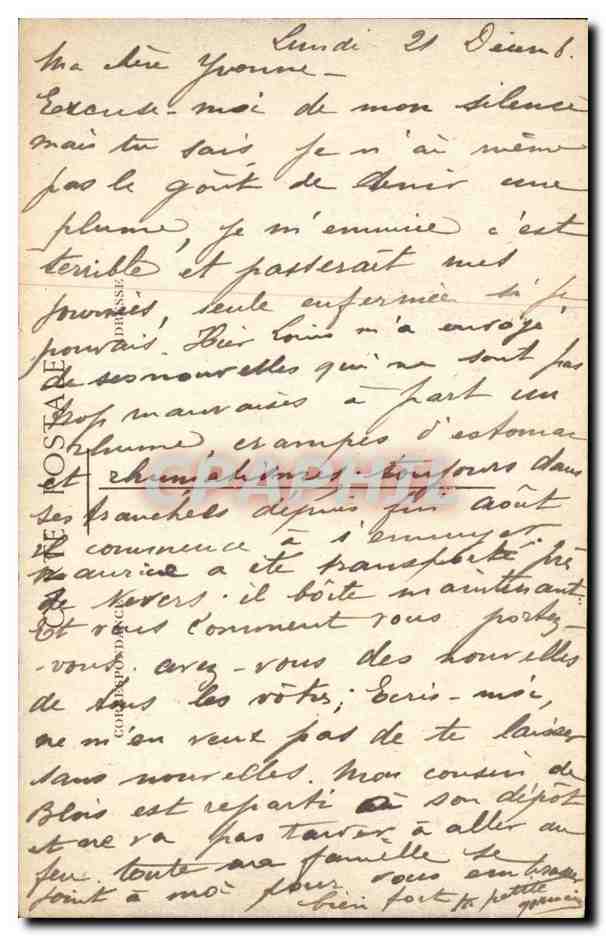 Lundi 21 Décemb.
Ma chère Yvonne -
Excuse-moi de mon silence
mais tu sais je n'ai même
pas le goût de tenir une
plume, je m'ennuie c'est
terrible et passerait mes
journées, seule enfermée si je
pouvais. Hier Louis m'a envoyé
de ses nouvelles qui ne sont pas
trop mauvaises à part un
rhume, crampes d'estomac
et rhumatismes. toujours dans
ses tranchées depuis fin août
il commence à s'ennuyer.
Maurice a été transporté près
de Nevers. il boîte maintenant.
Et vous comment vous portez-
-vous. avez-vous des nouvelles
de tous les vôtres; Ecris-moi,
ne m'en veux pas de te laisser
sans nouvelles. Mon cousin de
Blois est reparti à son dépôt
et ne va pas tarder à aller au
feu. toute ma famille se
joint à moi pour vous embrasser
bien fort ta petite
CARTE POSTALE
CORRESPONDANCE
ADRESSE
CPAPHIL